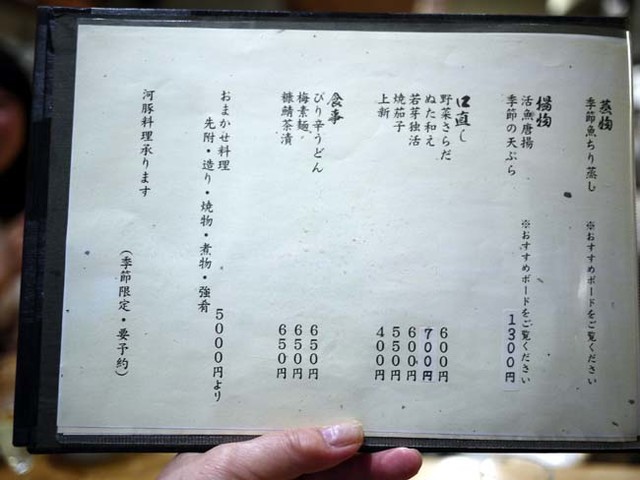 蒸物
季節魚ちり蒸し　※おすすめボードをご覧ください
揚物
活鮮唐揚　※おすすめボードをご覧ください
季節の天ぷら　1300円
口直し
野菜さらだ　600円
ぬた和え　700円
若芽独活　600円
焼茄子　550円
上新　400円
食事
ぴり辛うどん　650円
梅素麺　650円
糠鯖茶漬　650円
おまかせ料理
先附・造り・焼物・煮物・強肴　5000円より
河豚料理承ります
(季節限定・要予約)